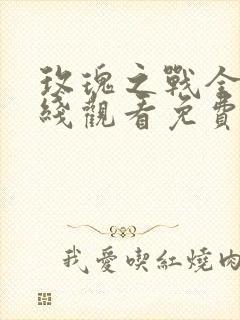 玫瑰之戰全
綫觀看免費
我愛喫紅燒肉